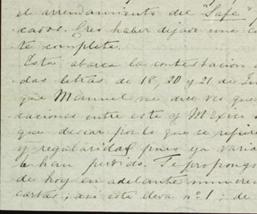 el arrendamiento del "Safe"
casos. Creo haber dejado una
te completa.
Esta abarca la contestación
das letras de 18, 20 y 21 de
que Manuel me dice ves que
daciones entre este y México
que desear por lo que se refiere
y regularidad, pues ya varia
se han perdido. Te propongo
de hoy en adelante numere
cartas; así esta lleva nº 1: de